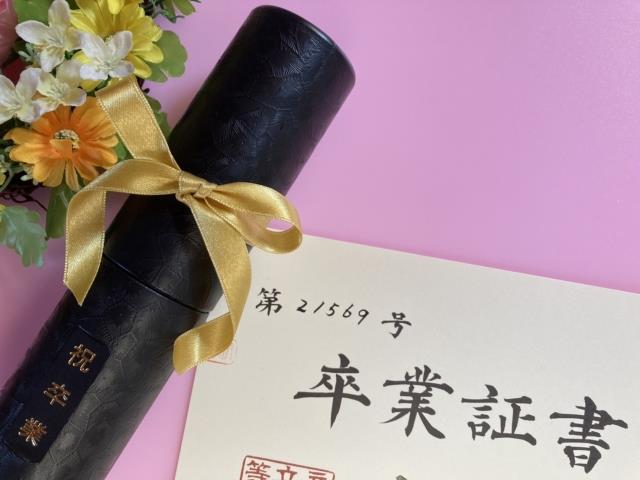 祝卒業
第21569号
卒業証書
等立